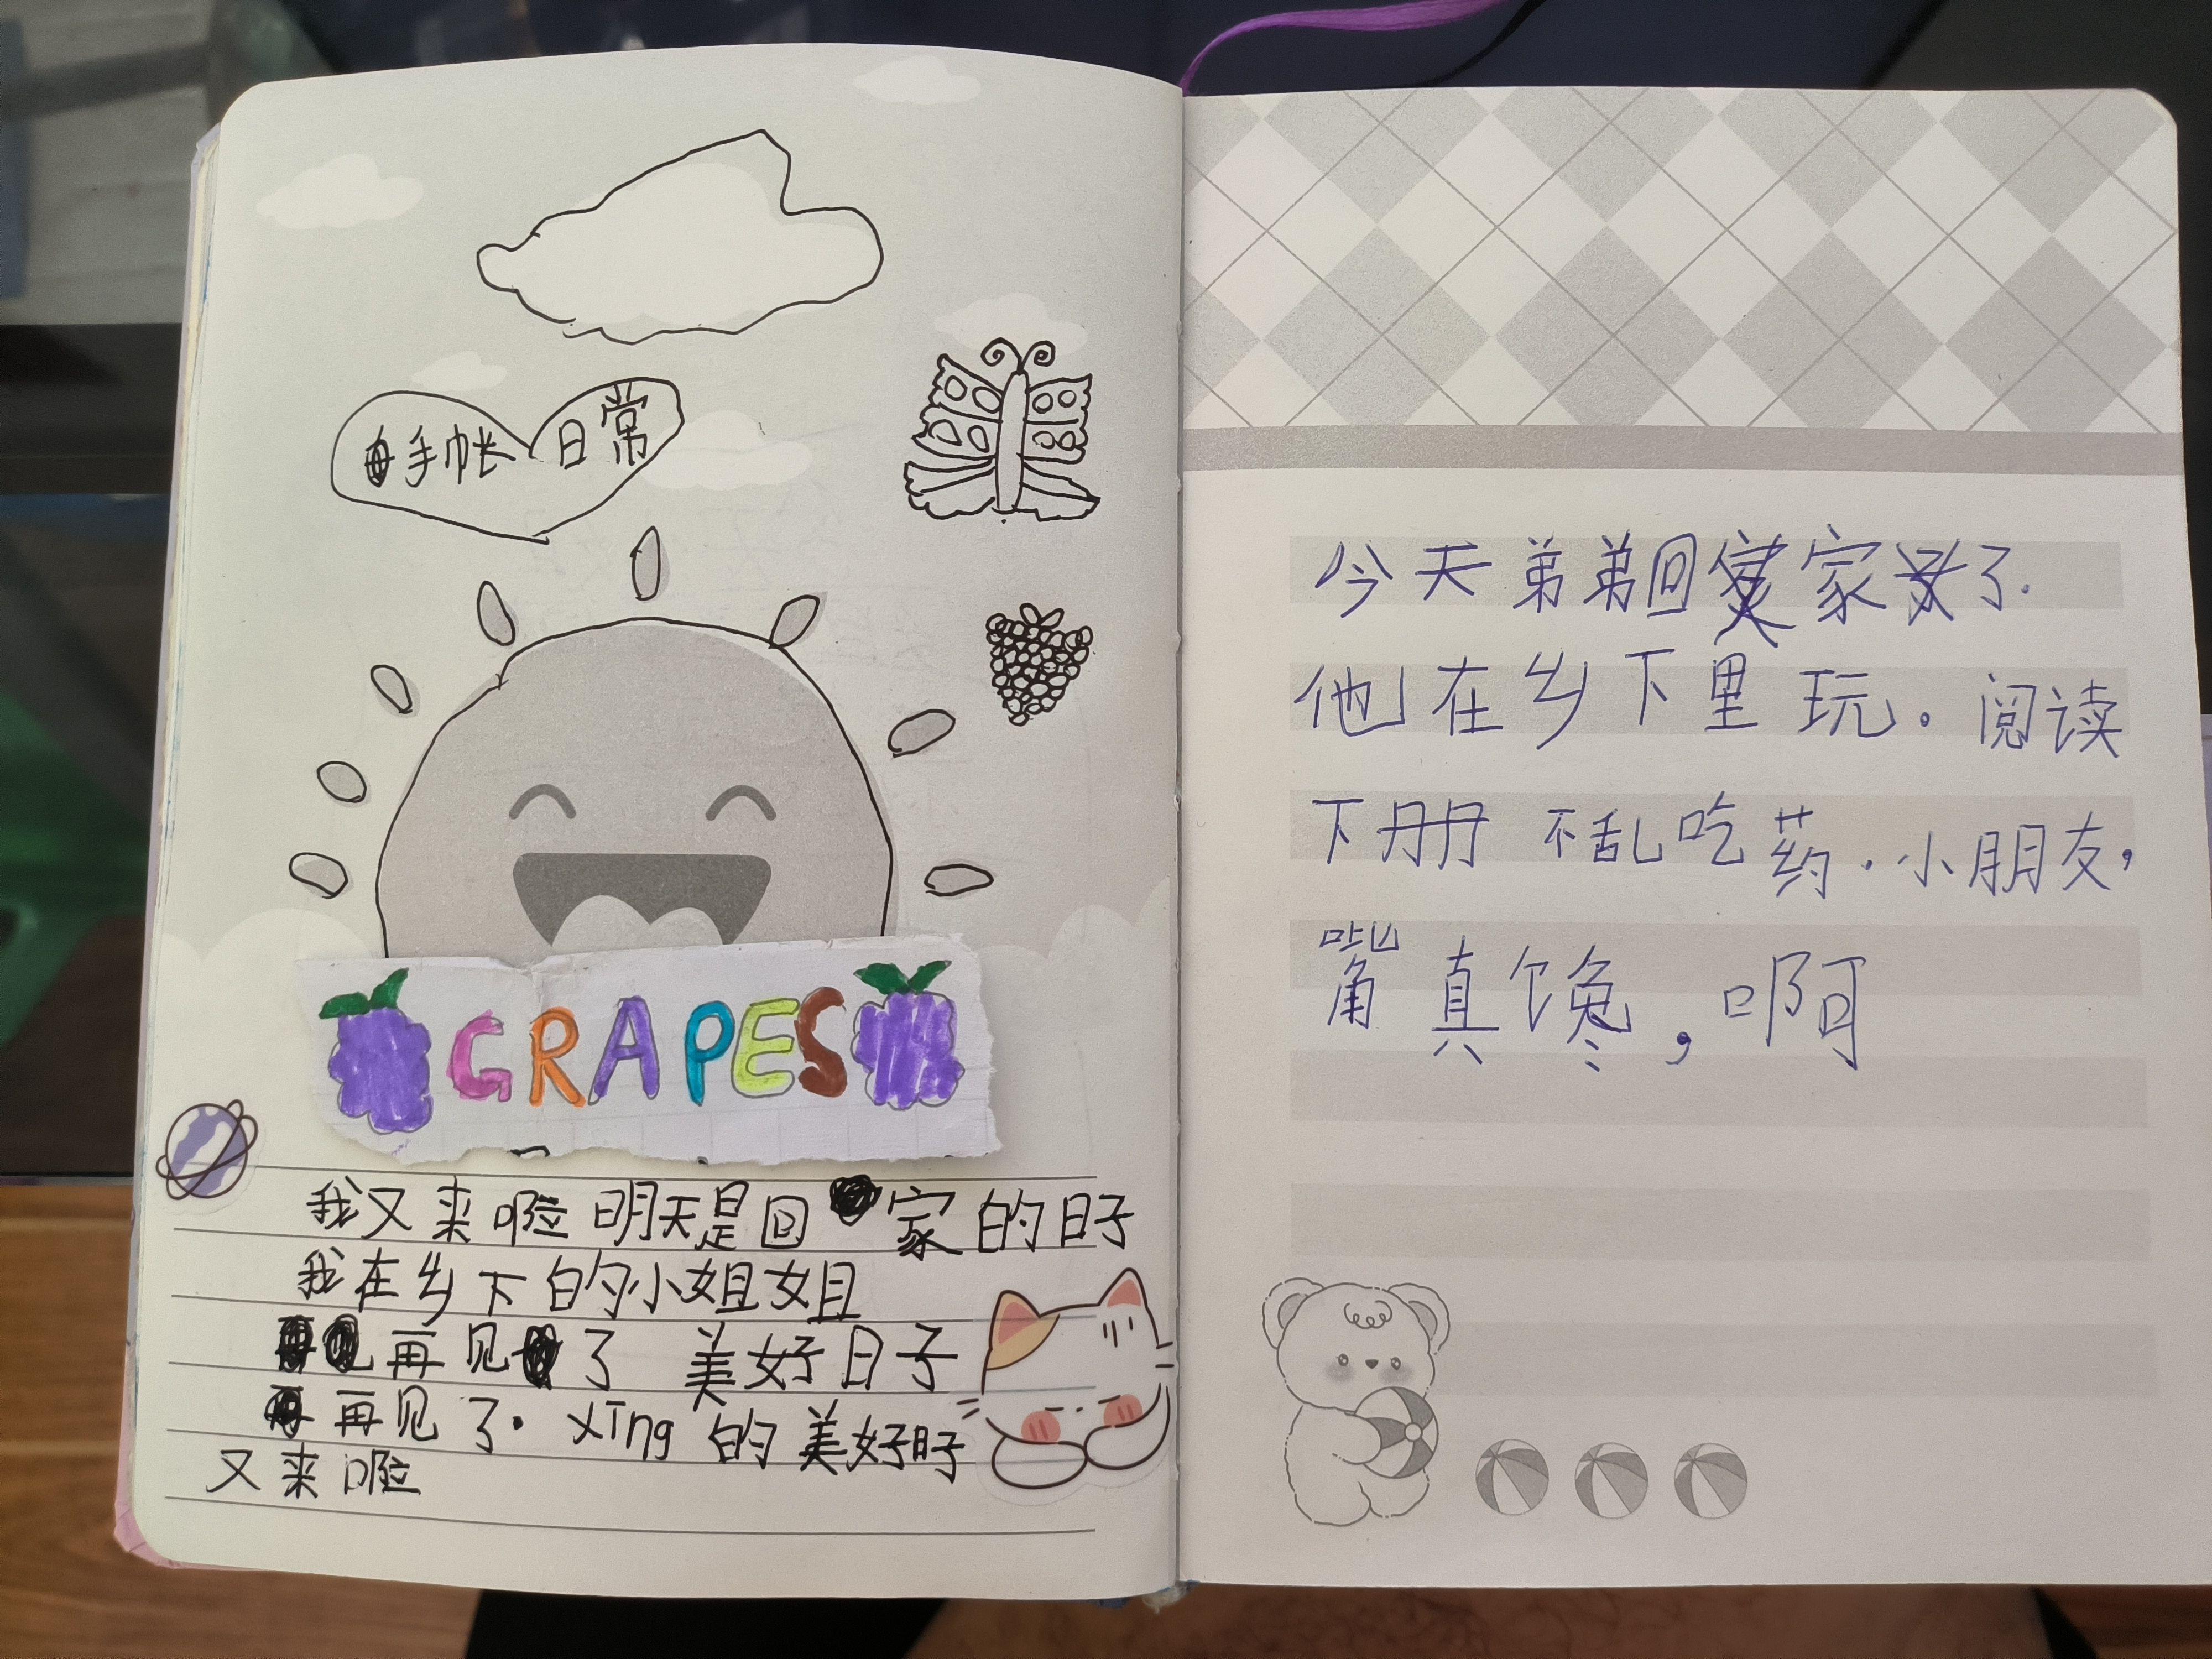 手帐日常
GRAPES
我又来啦明天是回家的日子
我在乡下的小姐姐
再见了 美好日子
再见了. xīng的美好日子
又来啦
今天弟弟回家了.
他在乡下里玩。阅读
下册 不乱吃药.小朋友,
嘴真馋,啊